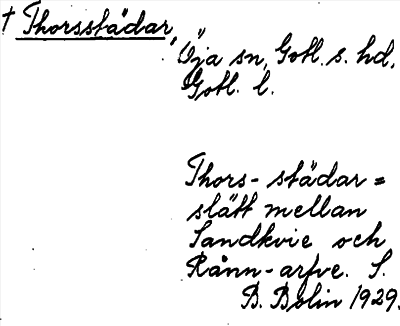 † Thorsstädar,
Öja sn, Gotl. s. hd,
Gotl. l.
Thors-städar =
slätt mellan
Sandkvie och
Rånn-arfve. S.
B. Bolin 1929.